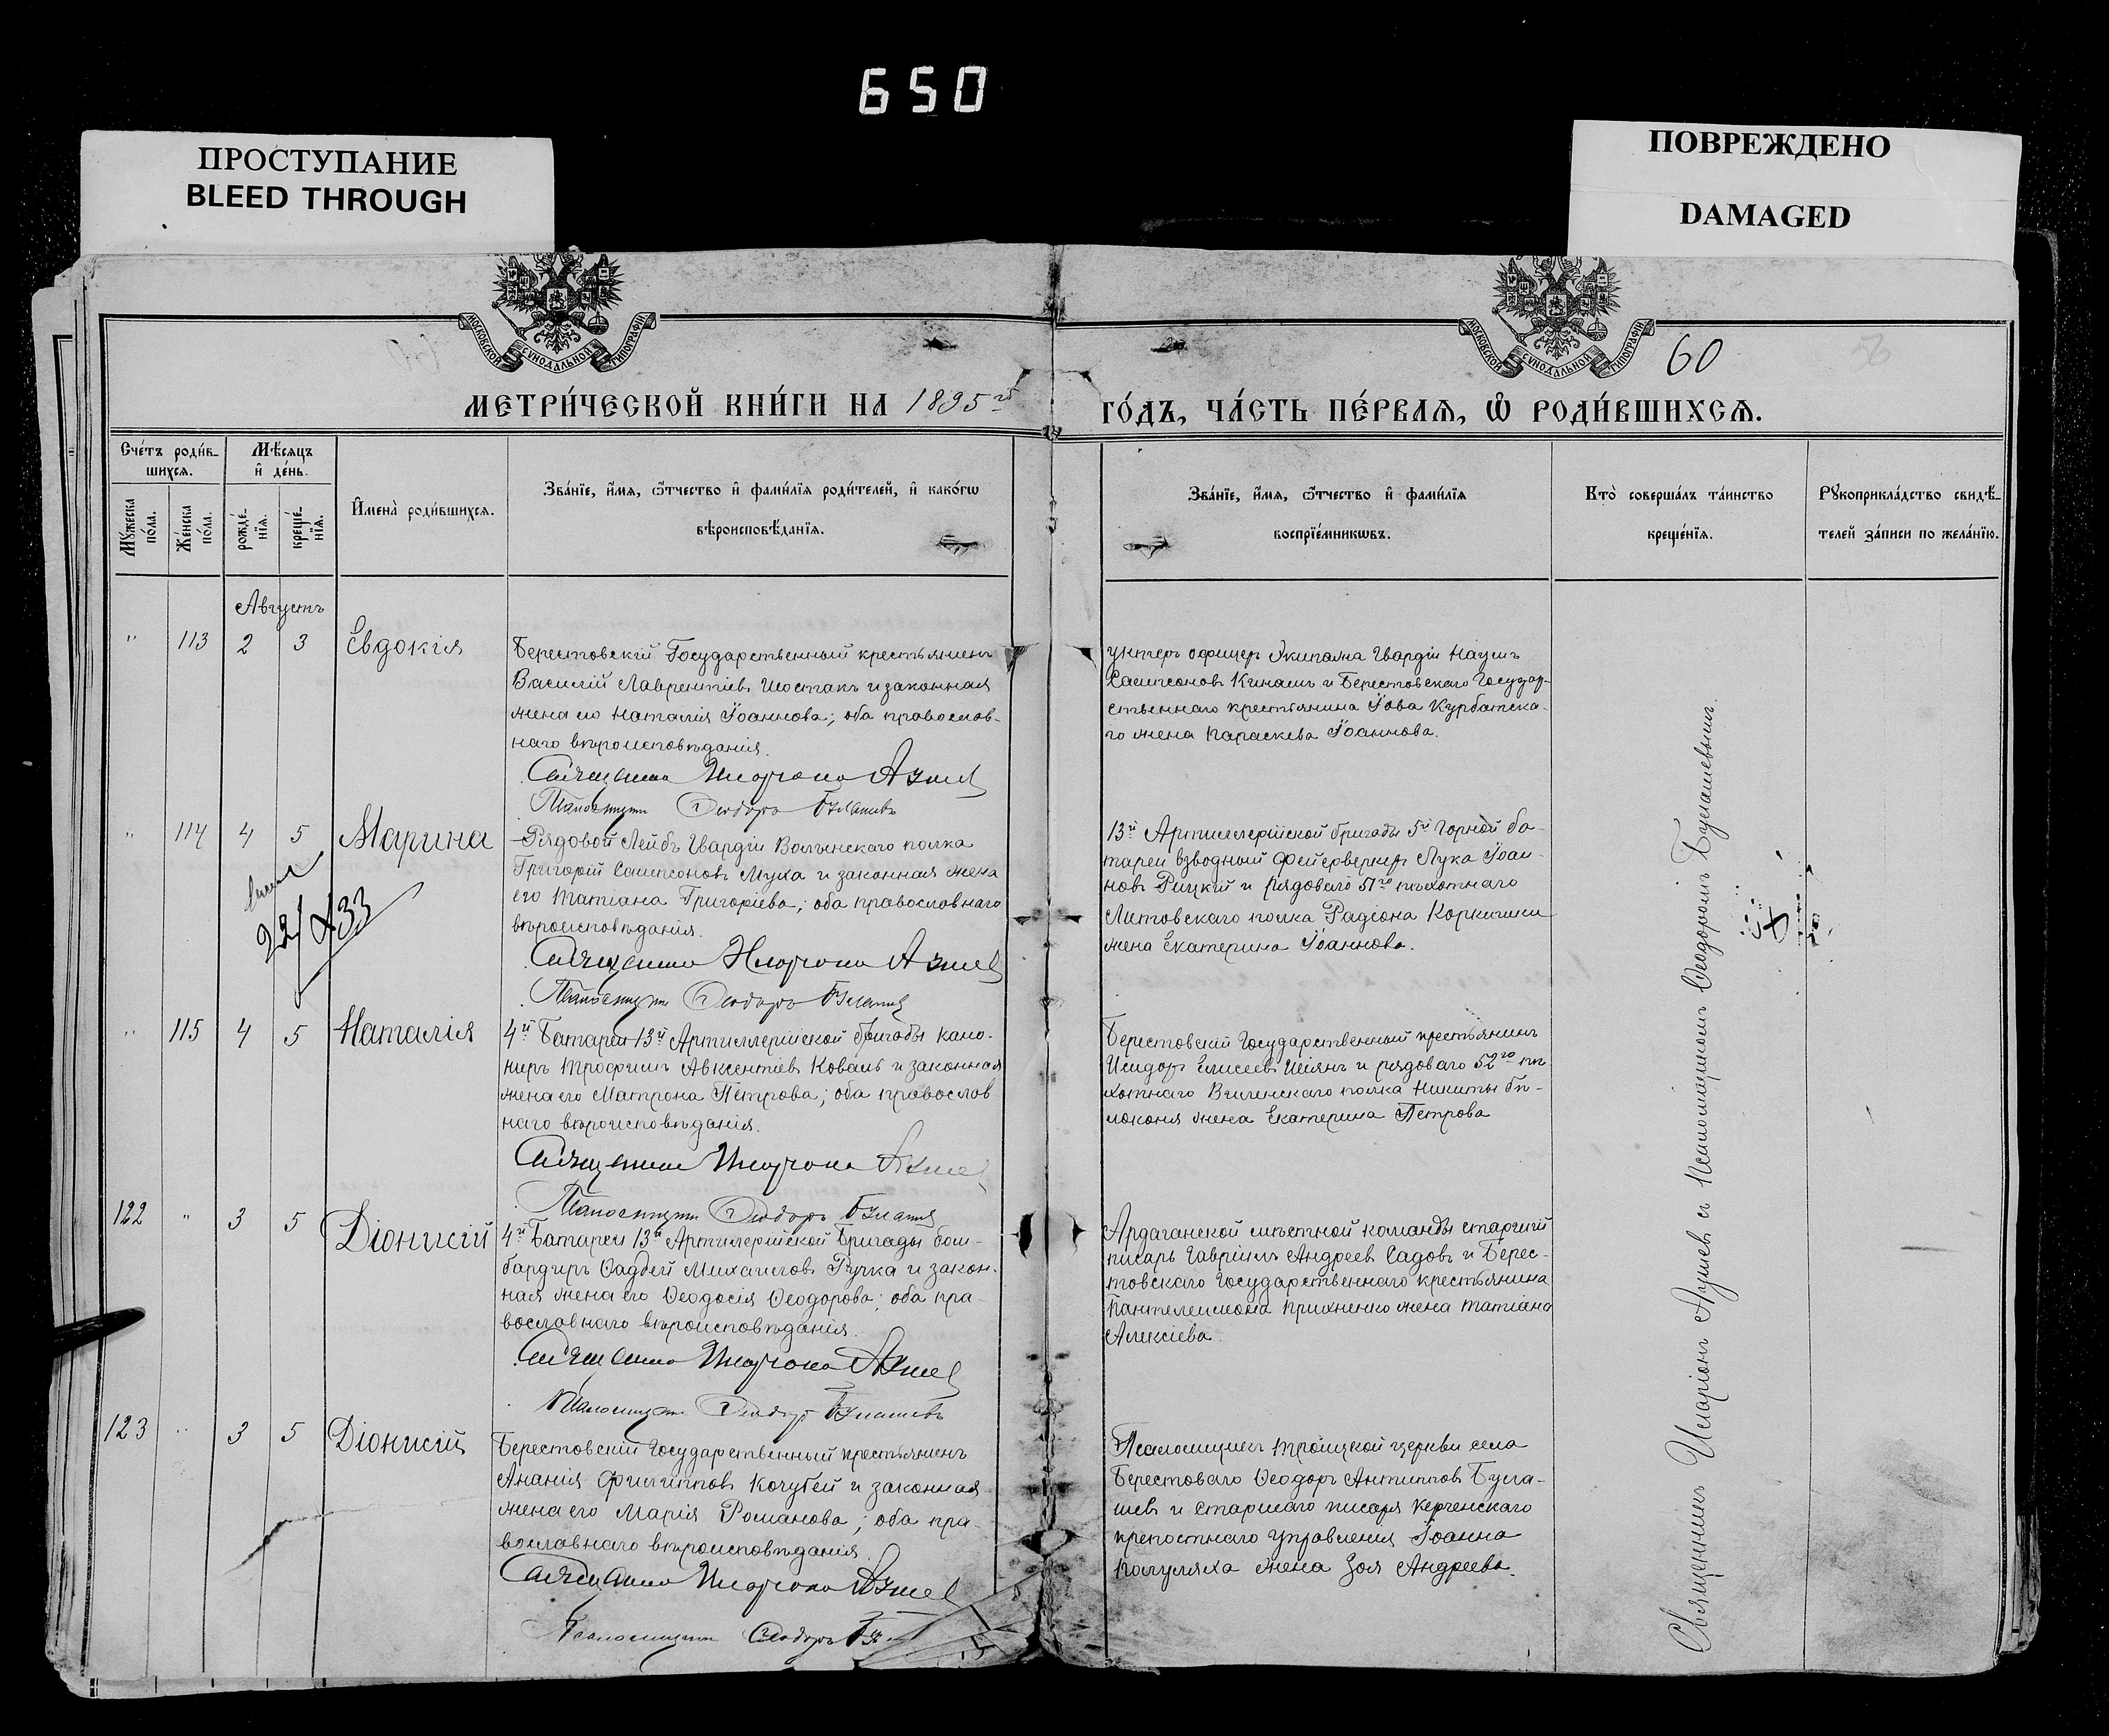 650
ПРОСТУПАНИЕ
BLEED THROUGH
ПОВРЕЖДЕНО
DAMAGED
МОСКОВСКОЙ СѴНОДАЛЬНОЙ ТИПОГРАФІИ
МОСКОВСКОЙ СѴНОДАЛЬНОЙ ТИПОГРАФІИ
60
МЕТРИ́ЧЕСКОЙ КНИ́ГИ НА 1895 го́дъ, ЧА́СТЬ ПЕ́РВАѦ, Ѡ҆ РОДИ́ВШИХСѦ.
Сче́тъ роди́в-
шихсѧ.
Мѣ́сѧцъ
и҆ де́нь.
Мꙋ́жеска
по́ла.
Же́нска
по́ла.
рожде́-
нїѧ.
креще́-
нїѧ.
И҆мена̀ роди́вшихсѧ.
Зва́нїе, и҆́мѧ, ѻ҆́тчество и҆ фами́лїѧ роди́телей, и҆ како́гѡ
вѣроисповѣ́данїѧ.
Зва́нїе, и҆́мѧ, ѻ҆́тчество и҆ фами́лїѧ
воспрїе́мникѡвъ.
Кто̀ соверша́лъ та́инство
креще́нїѧ.
Рꙋкоприкла́дство свидѣ́-
телей за́писи по жела́нїю.
Августъ
" 113 2 3 Евдокія
Берестовскій Государственный крестьянинъ
Василій Лаврентіевъ Шостакъ и законная
жена его Наталія Іоаннова; оба православ-
наго вѣроисповѣданія.
Священникъ Иларіонъ Азіев
Псаломщикъ Ѳеодоръ Булашевъ
унтеръ офицеръ Экипажа Гвардіи Наумъ
Сампсоновъ Кинашъ и Берестовскаго Государ-
ственнаго крестьянина Іова Курбатска-
го жена Параскева Іоаннова.
" 114 4 5 Марина
22/X 33
Рядовой Лейбъ Гвардіи Волынскаго полка
Григорій Сампсоновъ Муха и законная жена
его Татіана Григоріева; оба православнаго
вѣроисповѣданія.
Священникъ Иларіонъ
Псаломщикъ Ѳеодоръ Булашев
13й Артиллерійской бригады 5й Горной ба-
тареи взводный фейерверкеръ Лука Іоан-
новъ Рицкій и рядоваго 51го пѣхотнаго
Литовскаго полка Радіона
жена Екатерина Іоаннова.
" 115 4 5 Наталія
4й Батареи 13й Артиллерійской бригады кано-
ниръ Трофимъ Авксентіевъ Коваль и законная
жена его Матрона Петрова; оба православ
наго вѣроисповѣданія.
Священникъ Иларіонъ
Псаломщикъ Ѳеодоръ Булашев
Берестовскій Государственный крестьянинъ
Исидоръ Елисеевъ Шіянъ и рядоваго 52го пѣ
хотнаго Виленскаго полка Никиты Бѣ-
локоня жена Екатерина Петрова
122 " 3 5 Діонисій
4й Батареи 13й Артилерійской Бригады бом-
бардиръ Ѳаддей Михаиловъ Ручка и закон-
ная жена его Ѳеодосія Ѳеодорова; оба пра-
вославнаго вѣроисповѣданія.
Священникъ Иларіонъ
Псаломщикъ Ѳеодоръ Булашевъ
Ардаганской мѣстной команды старшій
писарь Гавріилъ Андреевъ Садовъ и Берес-
товскаго Государственнаго крестьянина
Пантелеимона Прихненко жена Татіана
Алексіева.
123 " 3 5 Діонисій
Берестовскій Государственный крестьянинъ
Ананія Филипповъ Кочубей и законная
жена его Марія Романова; оба пра-
вославнаго вѣроисповѣданія.
Священникъ Иларіонъ
Псаломщикъ Ѳеодоръ
Псаломщикъ Троицкой церкви села
Берестоваго Ѳеодоръ Антиповъ Була-
шевъ и старшаго писаря Керченскаго
крѣпостнаго управленія Іоанна
Колуляха жена Зоя Андреева.
Священникъ Иларіонъ съ Псаломщикомъ Ѳеодоромъ Булашевымъ.